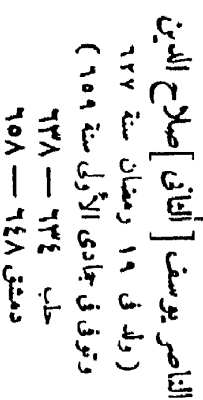 الناصر يوسف [الثانى] صلاح الدين
(ولد فى ١٩ رمضان سنة ٦٢٧
وتوفى فى جمادى الأولى سنة ٦٥٩)
حلب ٦٣٤ — ٦٣٨
دمشق ٦٤٨ — ٦٥٨